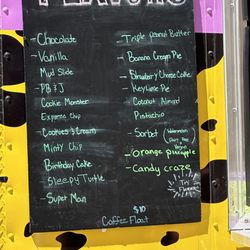 FLAVORS
- Chocolate
- Vanilla
- Mud Slide
- PB & J
- Cookie Monster
- Espresso Chip
- Cookies & Cream
- Minty Chip
- Birthday Cake
- Sleepy Turtle
- Super Man
- Triple Peanut Butter
- Banana Cream Pie
- Strawberry Cheese Cake
- Key Lime Pie
- Coconut Almond
- Pistachio
- Sorbet (Watermelon
Dairy free
- Orange Pineapple
- Candy craze
Try
$10
Coffee Float